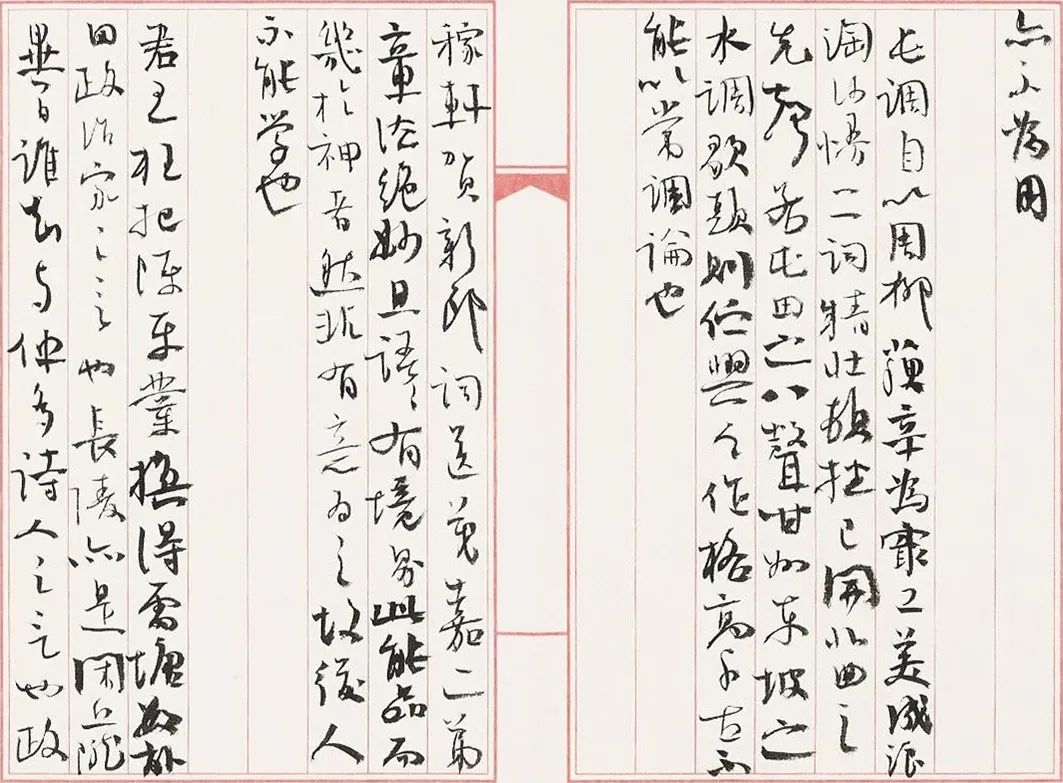 亦不為用
长調自以周柳蘇辛為最工美成浪
淘沙慢二詞精壯頓挫已開北曲之
先聲若屯田之八聲甘州東坡之
水調歌頭則佇興之作格高千古不
能以常調論也
稼軒賀新郎詞送茂嘉十二弟
章法絕妙且語々有境界此能品而
幾於神者然非有意為之故後人
不能学也
君王枉把陳平業換得雷塘數畝
田政治家之言也長陵亦是閑丘隴
異日誰知与仲多詩人之言也政